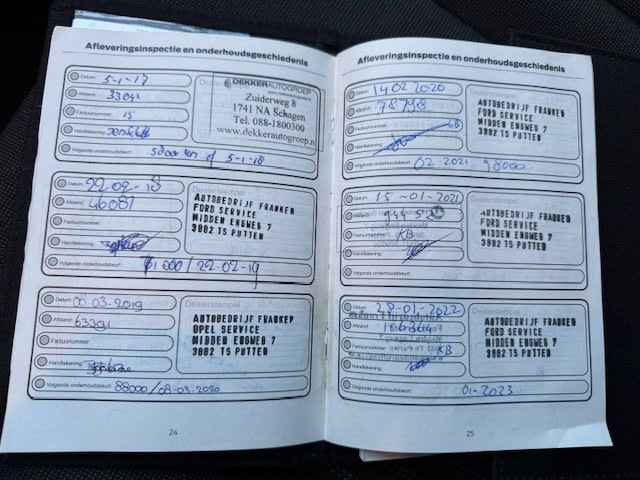 Afleveringsinspectie en onderhoudsgeschiedenis
Datum: 5-1-17
Afstand: 33041
Factuurnummer: 15
Handtekening:
Volgende onderhoudsbeurt: 5-1-18
DEKKERAUTOGROEP
Zuiderweg 8
1741 NA Schagen
Tel. 088-1800300
www.dekkerautogroep.nl
Datum: 22-02-18
Afstand: 46081
Factuurnummer:
Handtekening:
Volgende onderhoudsbeurt: 61000 / 22-02-19
AUTOBEDRIJF FRANKEN
FORD SERVICE
MIDDEN ENGWEG 7
3882 TS PUTTEN
Datum: 08-03-2019
Afstand: 63391
Factuurnummer:
Handtekening:
Volgende onderhoudsbeurt: 88000 / 08-03-2020
Dealerstempel
AUTOBEDRIJF FRANKEN
OPEL SERVICE
MIDDEN ENGWEG 7
3882 TS PUTTEN
24
Afleveringsinspectie en onderhoudsgeschiedenis
Datum: 14 02 2020
Afstand: 78798
Factuurnummer: KB
Handtekening:
Volgende onderhoudsbeurt: 02-2021 98000
AUTOBEDRIJF FRANKEN
FORD SERVICE
MIDDEN ENGWEG 7
3882 TS PUTTEN
Datum: 15-01-2021
Afstand:
Factuurnummer: KB
Handtekening:
Volgende onderhoudsbeurt:
AUTOBEDRIJF FRANKEN
FORD SERVICE
MIDDEN ENGWEG 7
3882 TS PUTTEN
Datum: 28-01-2022
Afstand:
Factuurnummer: KB
Handtekening:
Volgende onderhoudsbeurt: 01-2023
AUTOBEDRIJF FRANKEN
FORD SERVICE
MIDDEN ENGWEG 7
3882 TS PUTTEN
25